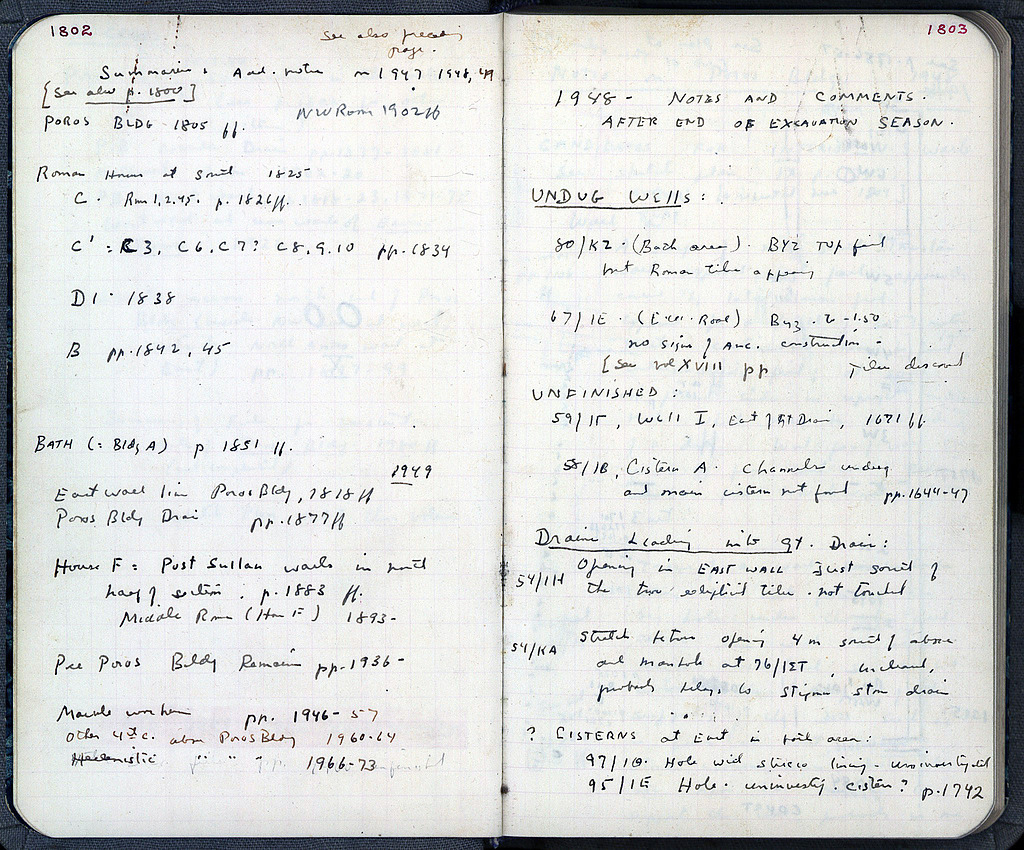 1802
See also preceding page.
Summaries & Add. notes on 1947 1948, 49
[See also p. 1800]
NW Room 1902 ff
POROS BLDG 1805 ff.
Roman House at South 1825
C. Rm 1,2.45. p. 1826 ff.
C' : C3, C6, C7? C8,9.10 pp. 1834
D1 · 1838
B pp. 1842, 45
BATH (= Bldg A) p 1851 ff.
1949
East wall line Poros Bldg, 1818 ff
Poros Bldg Drain pp. 1877 ff
House F = Post Sullan walls in north
half of section. p. 1883 ff.
Middle Room (House F) 1893-
Pre Poros Bldg Remains pp. 1936-
Marble workers pp. 1946-57
Other 4th c. above Poros Bldg 1960-64
Hellenistic " " " 1966-73
1803
1948 - NOTES AND COMMENTS.
AFTER END OF EXCAVATION SEASON.
UNDUG Wells:
80/KZ · (Bath area). By 2 top found
but Roman tile appearing
67/IE (Exc. Road) By 3. to -1.50
no sign of anc. construction -
[See vol XVIII pp Tiles discard
UNFINISHED:
59/IE, Well I, East of Gt Drain, 1671 ff.
58/IB, Cistern A. Channels undug
and main cistern not found pp. 1644-47
Drains Leading into gt. Drain:
54/IH Opening in EAST WALL just south of
the two elliptical tiles. not touched
54/KA Stretch between opening 4 m south of above
and manhole at 76/IET, uncleaned,
probably belongs to stone drain
? CISTERNS at East in area:
97/IO. Hole with stucco lining - uninvestigated
95/IE Hole. uninvestig. cistern? p. 1742